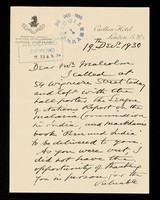 Carlton Hotel
London S.W.1
19 Dec. 1930
Dear Mr. Malcolm
I called at
54 Wymore Street today
and left with the
hall porter the League
of Nations Report on the
Malaria Commission
in India, and
book
to be delivered to you.
As you were out I
did not have the
opportunity of thanking
you in person for the
valuable